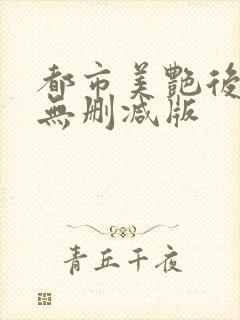 都市美艷後
無删减版
青丘千夜